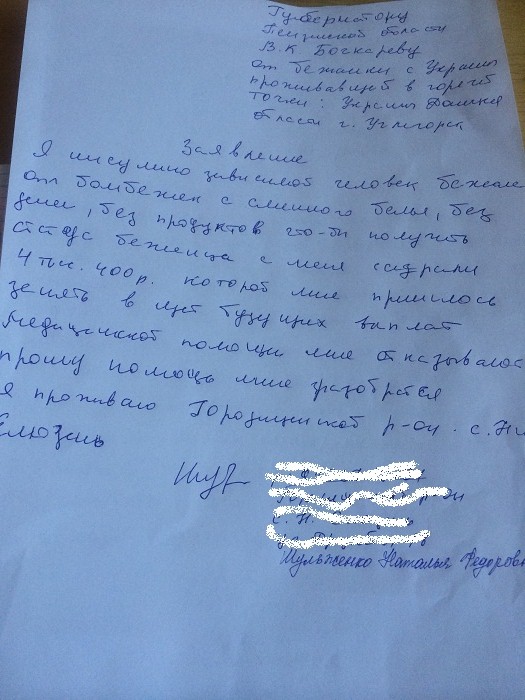 Губернатору
Пензенской области
В.К Бочкареву
от беженки с Украины
проживавшей в горячей
точки: Украины Донецкая
область г. Углегорск
Заявление
Я инсулино зависимой человек бежали
от бомбежек с сменного белья, без
денег, без продуктов что-бы получить
статус беженца с меня содрали
4 тыс. 400 р. которой мне пришлось
занять в щет будущих выплат
Медицинской помощи мне отказывалося
прошу помощь мне разобратся
Я проживаю Городищенской р-он. с. Ни
Елюзань
р-он
с. Н.
Шульженко Наталья Федоровн